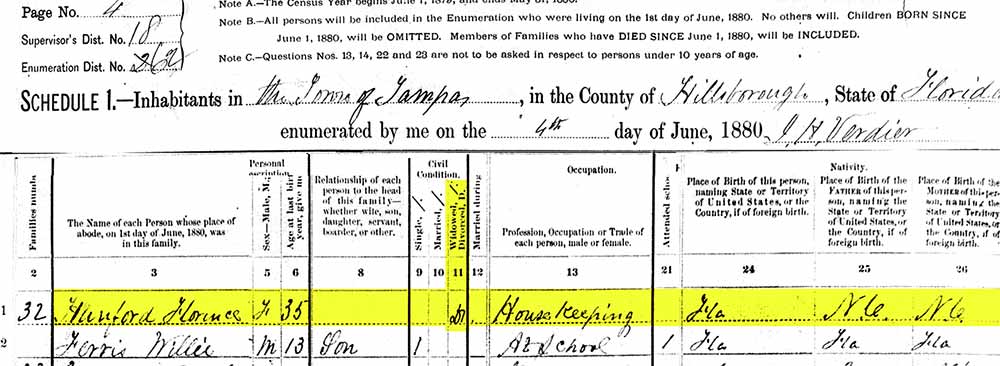 Note A.—The Census Year begins June 1, 1879, and ends May 31, 1880.
Page No. 4
Note B.—All persons will be included in the Enumeration who were living on the 1st day of June, 1880. No others will. Children BORN SINCE
Supervisor's Dist. No. 18
June 1, 1880, will be OMITTED. Members of Families who have DIED SINCE June 1, 1880, will be INCLUDED.
Enumeration Dist. No.
Note C.—Questions Nos. 13, 14, 22 and 23 are not to be asked in respect to persons under 10 years of age.
SCHEDULE 1.—Inhabitants in the Town of Tampa, in the County of Hillsborough, State of Florida
enumerated by me on the 4th day of June, 1880. J H Verdier
Families numb
The Name of each Person whose place of
abode, on 1st day of June, 1880, was
in this family.
Personal
Sex—Male, M.;
Age at last birt
Relationship of each
person to the head
of this family—
whether wife, son,
daughter, servant,
boarder, or other.
Civil
Condition.
Single, /.
Married, /.
Widowed, /.
Divorced, D.
Married during
Occupation.
Profession, Occupation or Trade of
each person, male or female.
Attended schoo
Nativity.
Place of Birth of this person,
naming State or Territory
of United States, or the
Country, if of foreign birth.
Place of Birth of the
FATHER of this per-
son, naming the
State or Territory
of United States, or
the Country, if of
foreign birth.
Place of Birth of the
MOTHER of this per-
son, naming the
State or Territory
of United States, or
the Country, if of
foreign birth.
2 3 5 6 8 9 10 11 12 13 21 24 25 26
1 32 Hanford Florence F 35 D. House keeping Fla N C. N C.
2 Ferris Willie M 13 Son 1 At School 1 Fla Fla Fla